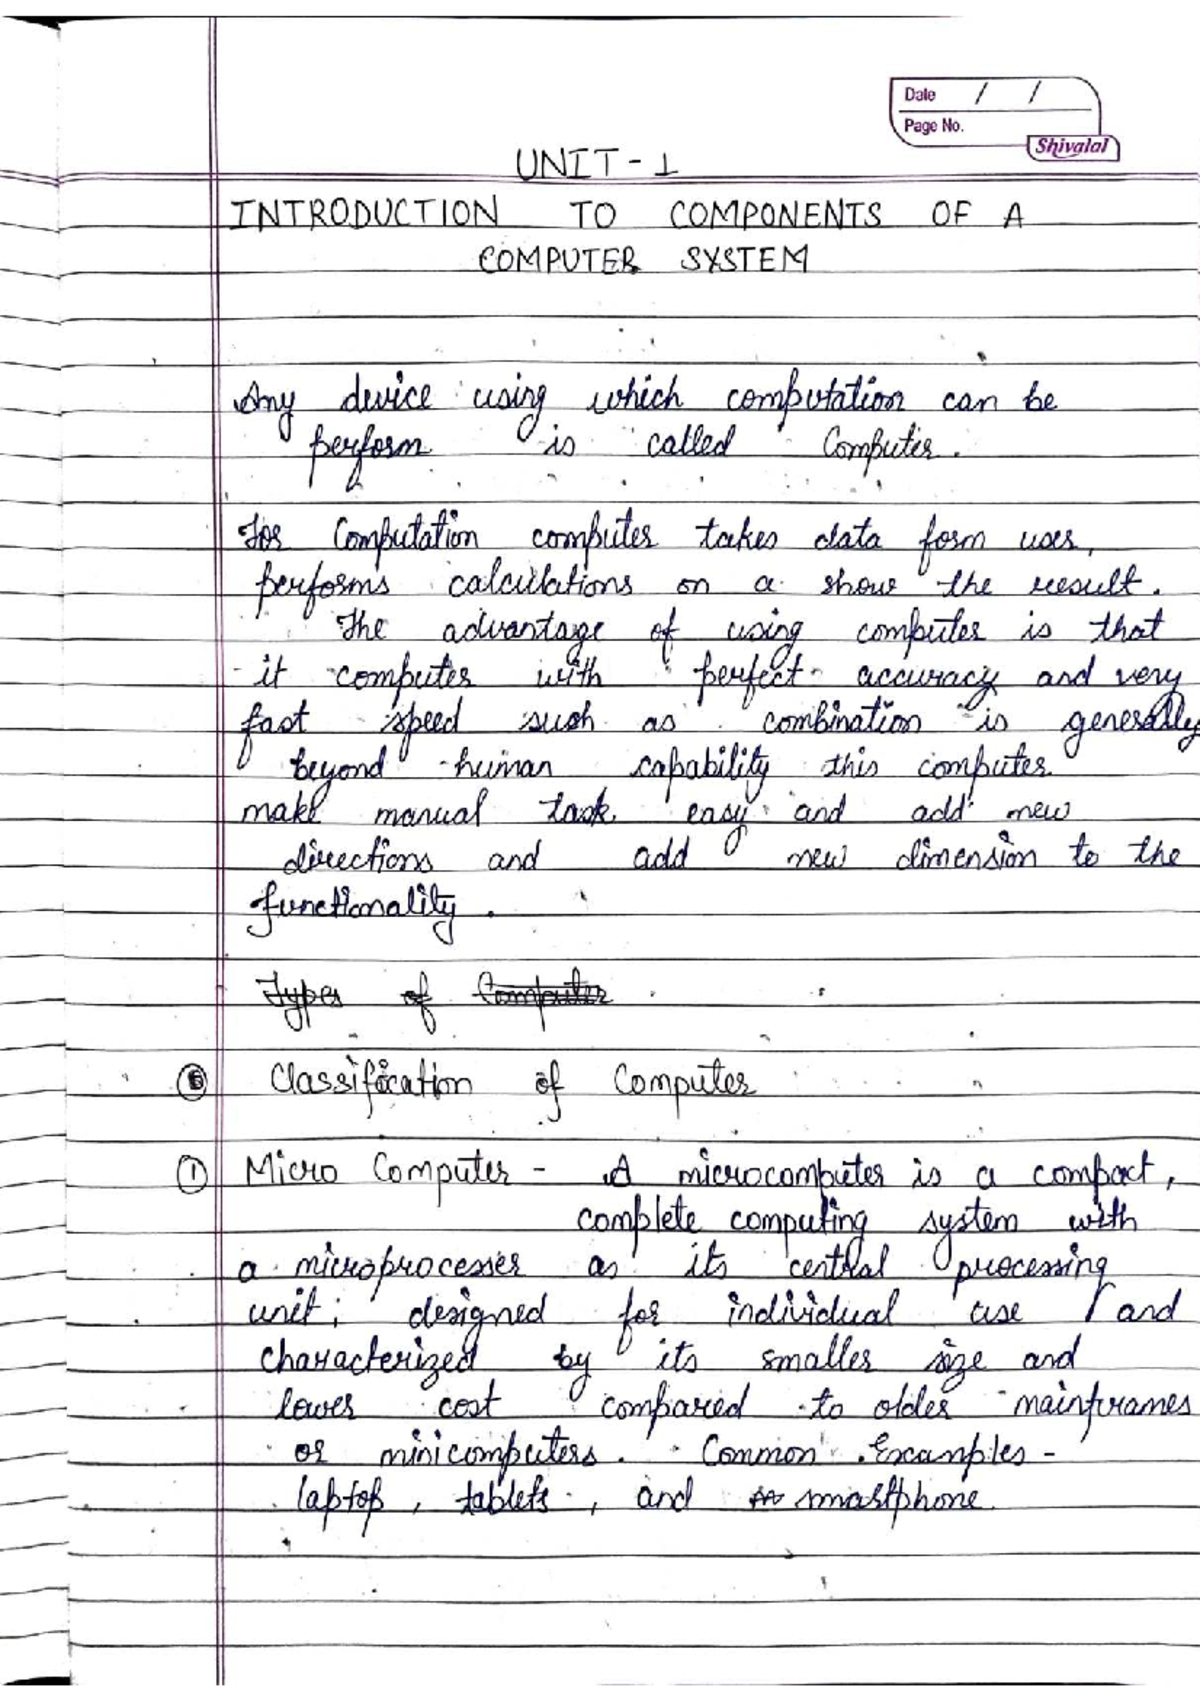 Date / /
Page No.
Shivalal
UNIT-1
INTRODUCTION TO COMPONENTS OF A
COMPUTER SYSTEM
Any device using which computation can be
perform is called Computer.
For Computation computer takes data form user,
performs calculations on a show the result.
The advantage of using computer is that
it computer with perfect accuracy and very
fast speed such as combination is generally
beyond human capability this computer
make manual task easy and add new
directions and add new dimension to the
functionality.
Types of Computer
Classification of Computer
① Micro Computer - A microcomputer is a compact,
complete computing system with
a microprocesser as its central processing
unit; designed for individual use and
characterized by its smaller size and
lower cost compared to older mainframes
or minicomputers. Common Examples -
laptop, tablets, and smartphone.